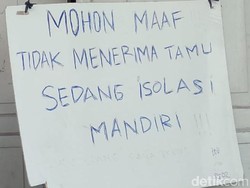 MOHON MAAF
TIDAK MENERIMA TAMU
SEDANG ISOLASI
MANDIRI
detikcom